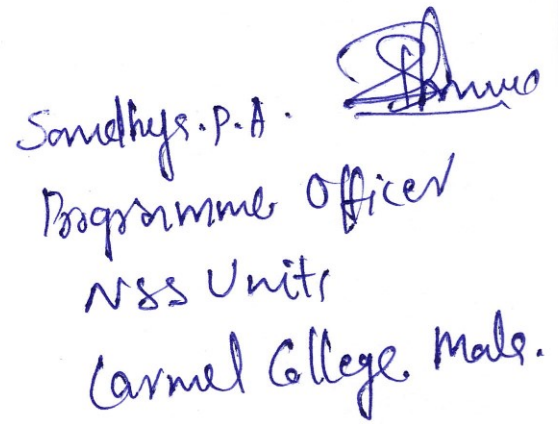 Sandhya.P.A.
Programme Officer
NSS Units
Carmel College. Mala.